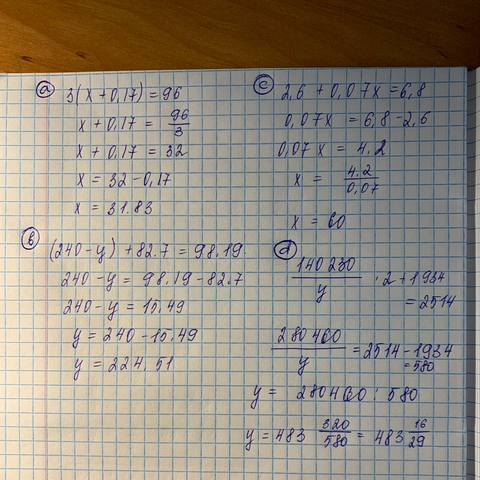 a
3(x+0,17)=96
x+0,17 = 96/3
x+0,17 = 32
x = 32-0,17
x = 31.83
b
(240-y)+82.7=98.19
240-y = 98.19-82.7
240-y = 15.49
y = 240-15.49
y = 224.51
c
2,6+0,07x=6,8
0,07x = 6,8-2,6
0,07x = 4.2
x = 4.2/0,07
x = 60
d
140230/y · 2+1934
= 2514
280460/y = 2514-1934
= 580
y = 280460 : 580
y = 483 320/580 = 483 16/29